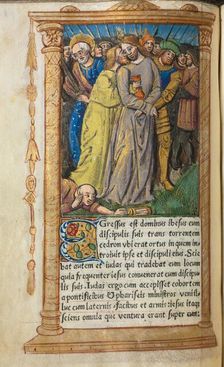 Gressus est dominus ihesus cum
discipulis suis trans torrentem
cedron vbi erat ortus in quem in
troiuit ipse et discipuli eius. Scie
bat autem et iudas qui tradebat eum locum
quia frequenter iesus conuenerat cum discipulis
suis. Iudas ergo cum accepisset cohortem
a pontificibus & phariseis ministros venit il
luc cum laternis & facibus et armis: iesus itaque
sciens omnia que ventura erant super eum: